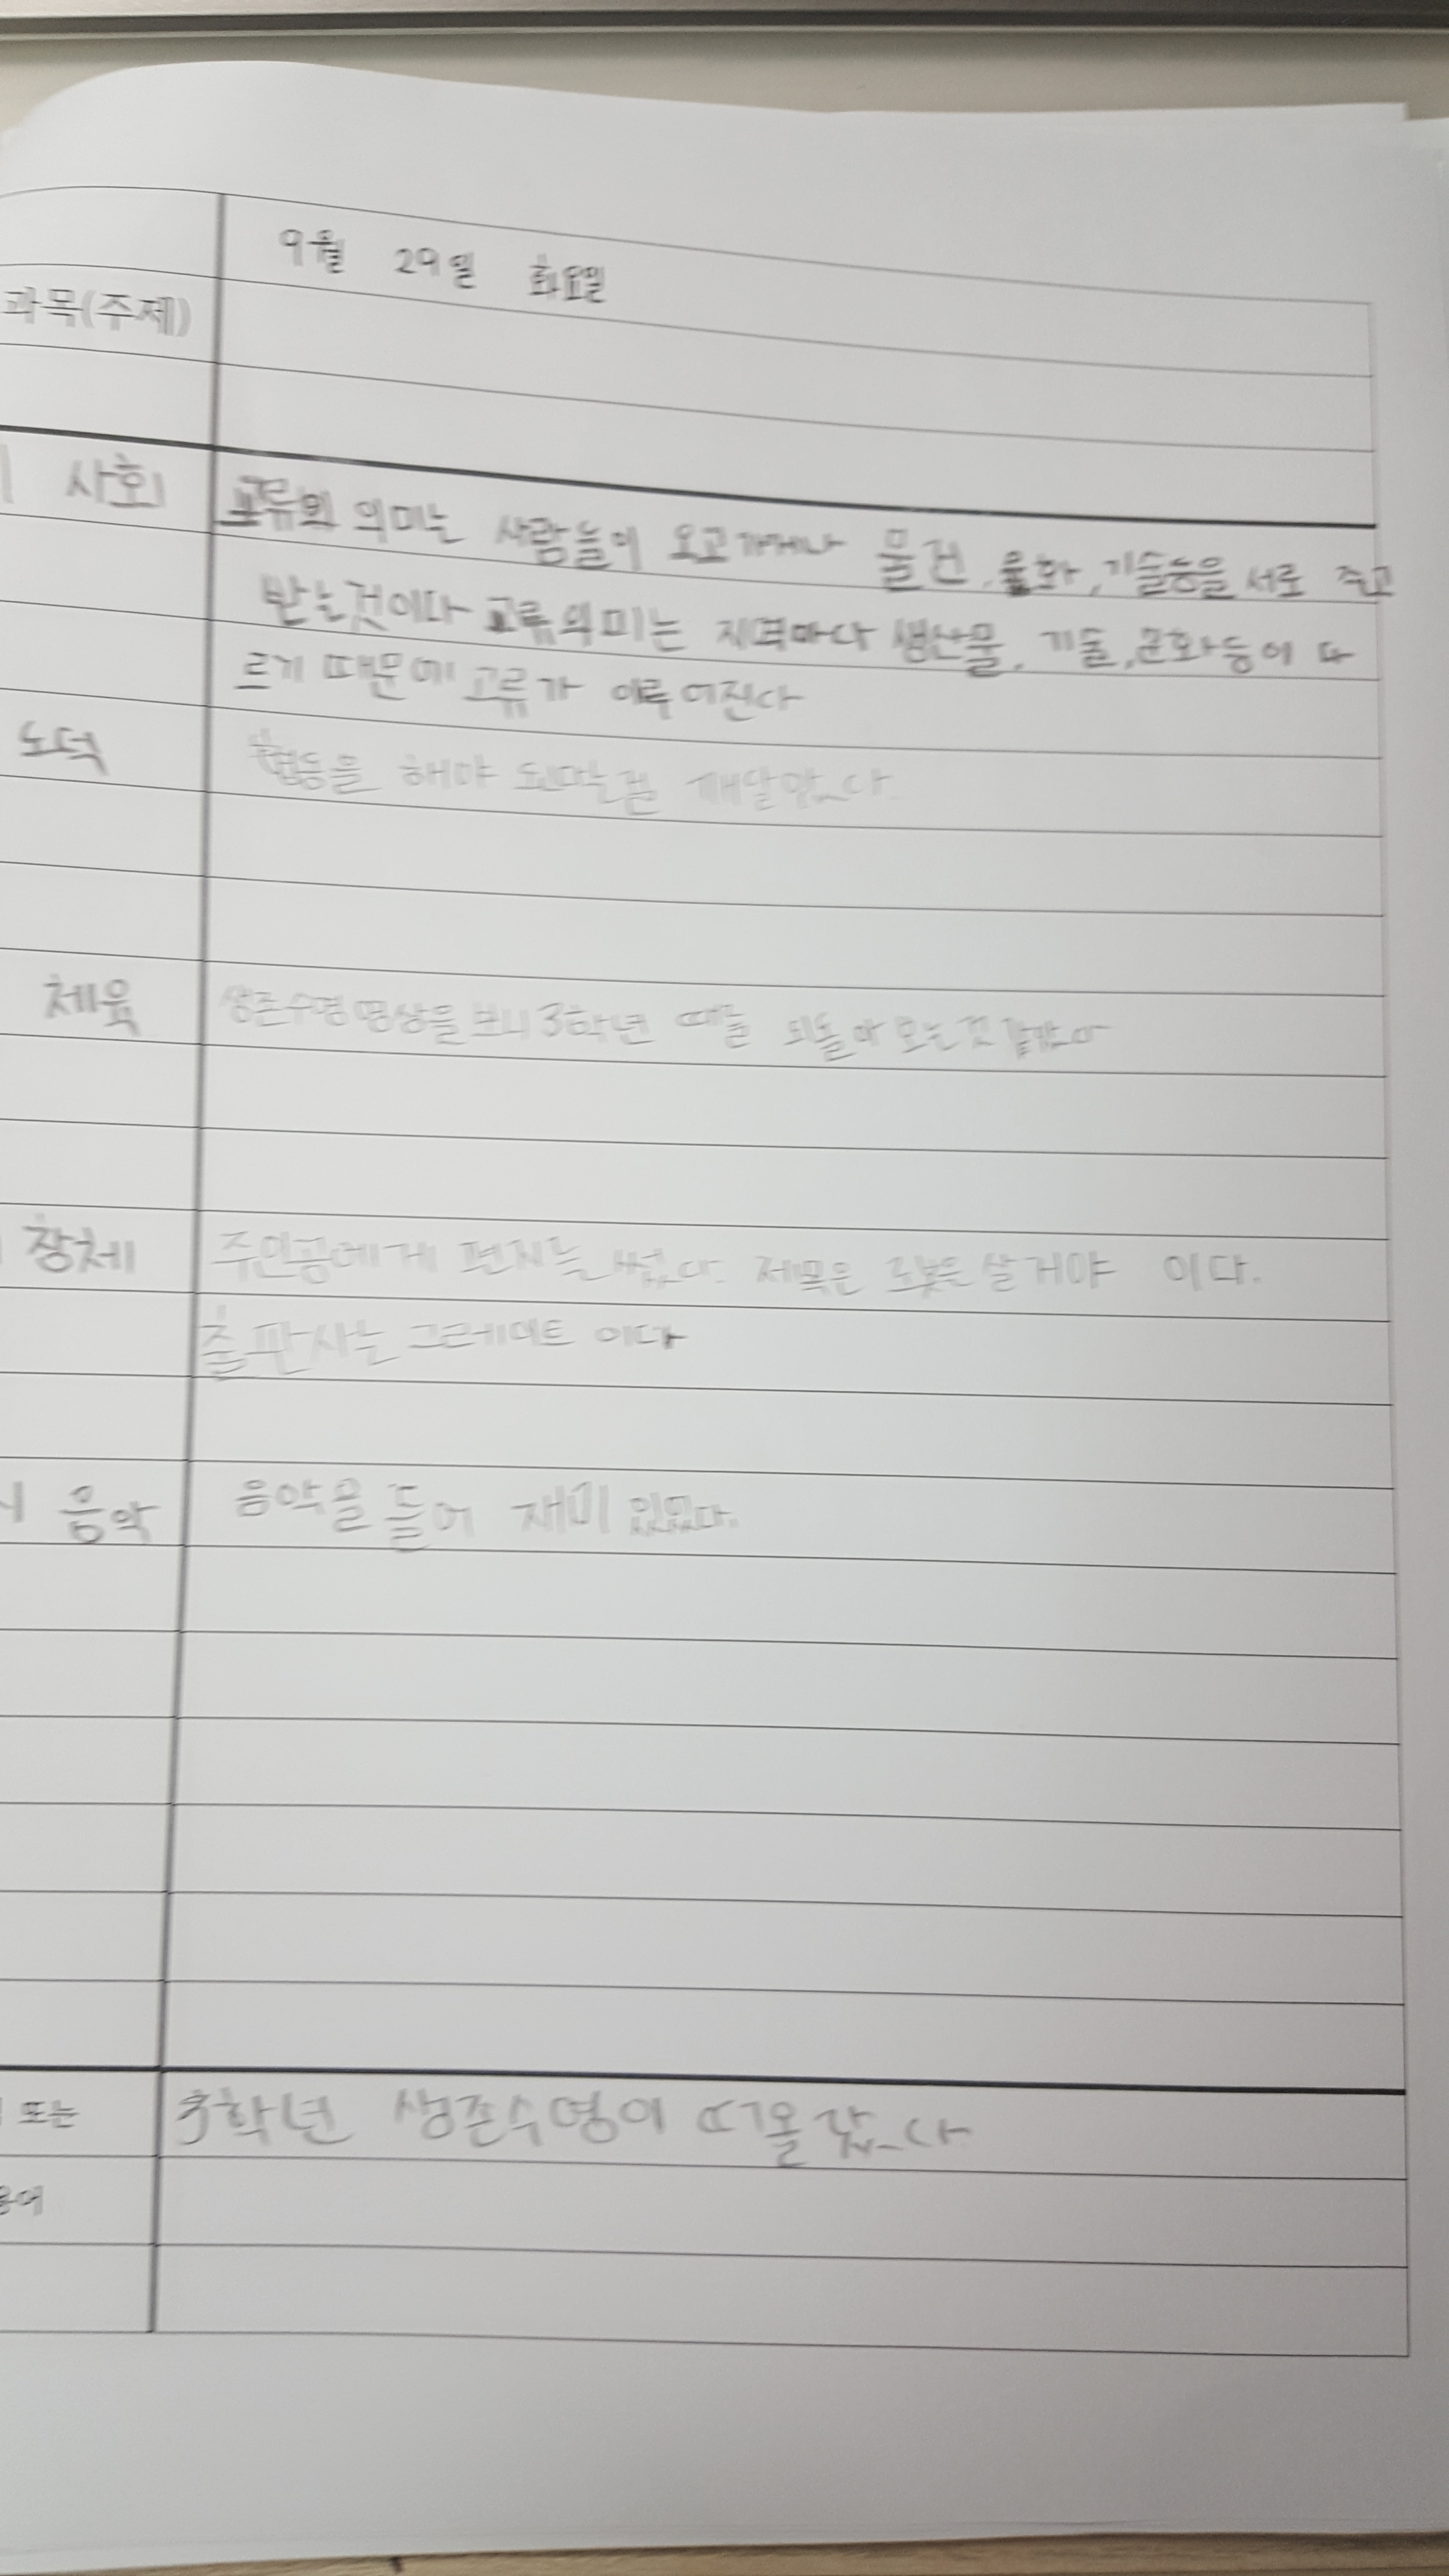 9월 29일 화요일
과목(주제)
사회 교류의 의미는 사람들이 오고가거나 물건, 문화, 기술등을 서로 주고
받는것이다 교류의미는 지역마다 생산물, 기술, 문화등이 다
르기 때문에 교류가 이루어진다
도덕 협동을 해야 된다는걸 깨달았다.
체육 생존수영 영상을 보니 3학년 때를 되돌아 보는것 같았다
창체 주인공에게 편지를 썼다. 제목은 살거야 이다.
출판사는 그레이트 이다
음악 음악을 들어 재미 있었다.
또는 3학년 생존수영이 떠올랐다